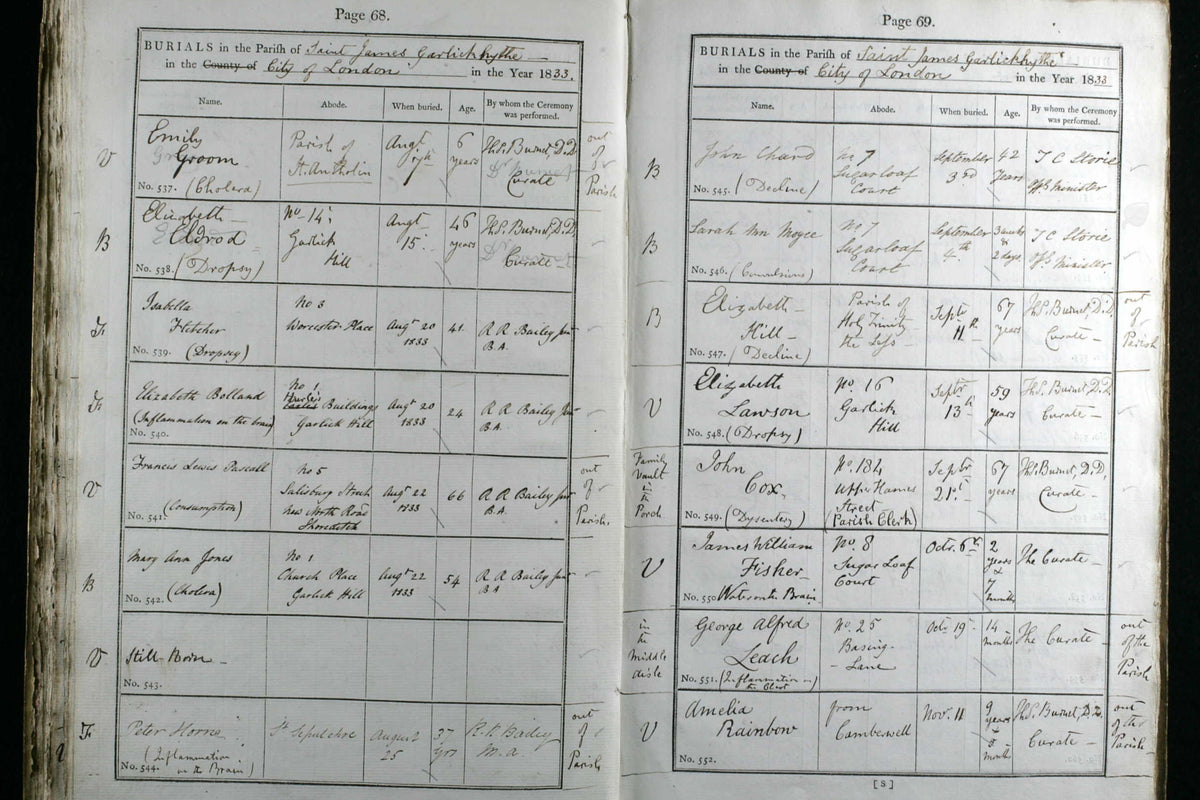 Page 68.
BURIALS in the Parish of Saint James Garlickhythe
in the County of City of London in the Year 1833.
Name.
Abode.
When buried.
Age.
By whom the Ceremony was performed.
V
Emily
Groom
No. 537. (Cholera)
Parish of
St. Antholin
Augt
7th
6
years
Ths. Burnet, D.D.
Curate
out
of
Parish
B
Elizabeth
No. 538. (Dropsy)
No 14
Garlick
Hill
Augt
15.
46
years
Ths. Burnet, D.D.
Curate
F
Isabella
Fletcher
No. 539. (Dropsy)
No 3
Worcester Place
Augt 20
1833
41
R R Bailey Junr
B.A.
F
Elizabeth Bolland
(Inflammation on the brain)
No. 540.
No 1
Buildings
Garlick Hill
Augt 20
1833
24
R R Bailey Junr
B.A.
V
Francis Lewis Pascall
No. 541. (Consumption)
No 5
Salisbury Street
New North Road
Shoreditch
Augt 22
1833
66
R R Bailey Junr
B.A.
out
of
Parish.
B
Mary Ann Jones
No. 542. (Cholera)
No 1
Church Place
Garlick Hill
Augt 22
1833
54
R R Bailey Junr
B A
V
Still Born
No. 543.
F
Peter Horne
(Inflammation
No. 544. on the Brain)
St Sepulchre
August
25
37
yrs
R. R. Bailey
M.A.
out
of
Parish
Page 69.
BURIALS in the Parish of Saint James Garlickhythe
in the County of City of London in the Year 1833
Name.
Abode.
When buried.
Age.
By whom the Ceremony was performed.
B
John Chard
No. 545. (Decline)
No 7
Sugarloaf
Court
September
3rd
42
Years
T C Storie
Offg Minister
B
Sarah Ann
No. 546. (Convulsions)
No 7
Sugarloaf
Court
September
4th
3 weeks
&
2 days
T C Storie
Offg Minister
B
Elizabeth
Hill
No. 547. (Decline)
Parish of
Holy Trinity
the Less
Septr
11th
67
years
Ths. Burnet, D.D.
Curate
out
of
Parish
V
Elizabeth
Lawson
No. 548. (Dropsy)
No. 16
Garlick
Hill
Septr
13th
59
years
Ths. Burnet, D.D.
Curate
Family
Vault
in
the
Porch
John
Cox
No. 549. (Dysentery)
No. 184
Upper Thames
Street
(Parish Clerk)
Septr
21st
67
years
Ths. Burnet, D.D.
Curate
V
James William
Fisher
No. 550 Water on the Brain
No. 8
Sugar Loaf
Court
Octr. 6th
2
years
&
7
months
The Curate
in
the
Middle
Aisle
George Alfred
Leach
No. 551. (Inflammation in
the Chest
No. 25
Basing
Lane
Octr 19
14
months
The Curate
out
of the
Parish
V
Amelia
Rainbow
No. 552.
from
Camberwell
Novr. 11
9
years
&
months
Ths. Burnet, D.D.
Curate
out
of the
Parish
[S]